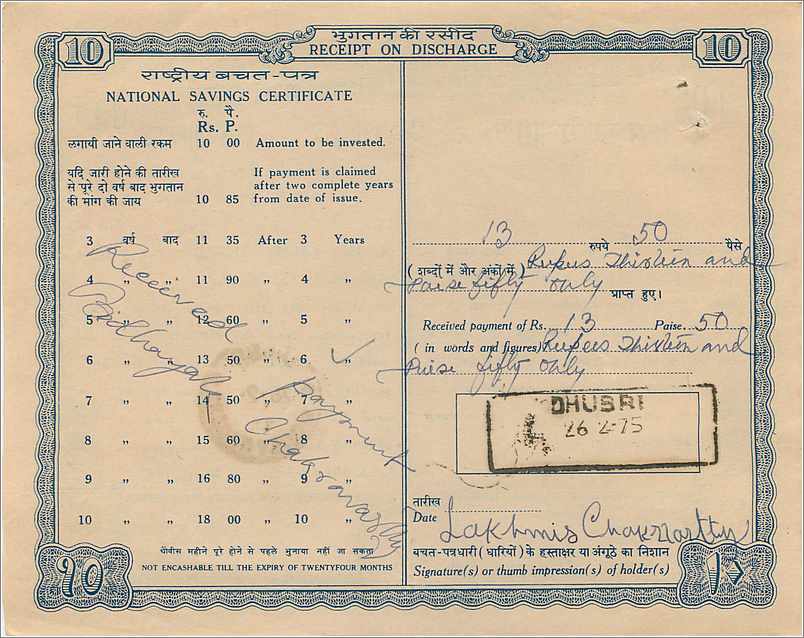 10
भुगतान की रसीद
RECEIPT ON DISCHARGE
10
राष्ट्रीय बचत-पत्र
NATIONAL SAVINGS CERTIFICATE
रु. पै.
Rs. P.
लगायी जाने वाली रकम 10 00 Amount to be invested.
यदि जारी होने की तारीख
से पूरे दो वर्ष बाद भुगतान
की मांग की जाय 10 85
If payment is claimed
after two complete years
from date of issue.
3 वर्ष बाद 11 35 After 3 Years
4 " " 11 90 " 4 "
5 " " 12 60 " 5 "
6 " " 13 50 " 6 "
7 " " 14 50 " 7 "
8 " " 15 60 " 8 "
9 " " 16 80 " 9 "
10 " " 18 00 " 10 "
चौबीस महीने पूरे होने से पहले भुनाया नहीं जा सकता
NOT ENCASHABLE TILL THE EXPIRY OF TWENTYFOUR MONTHS
Received payment
Chakravartty
13 रुपये 50 पैसे
(शब्दों में और अंकों में) Rupees Thirteen and
Paise fifty only प्राप्त हुए।
Received payment of Rs. 13 Paise. 50
(in words and figures) Rupees Thirteen and
Paise fifty only
DHUBRI
26 2-75
तारीख
Date
Lakhmis Chakravartty
बचत-पत्रधारी (धारियों) के हस्ताक्षर या अंगूठे का निशान
Signature(s) or thumb impression(s) of holder(s)
१०
१०